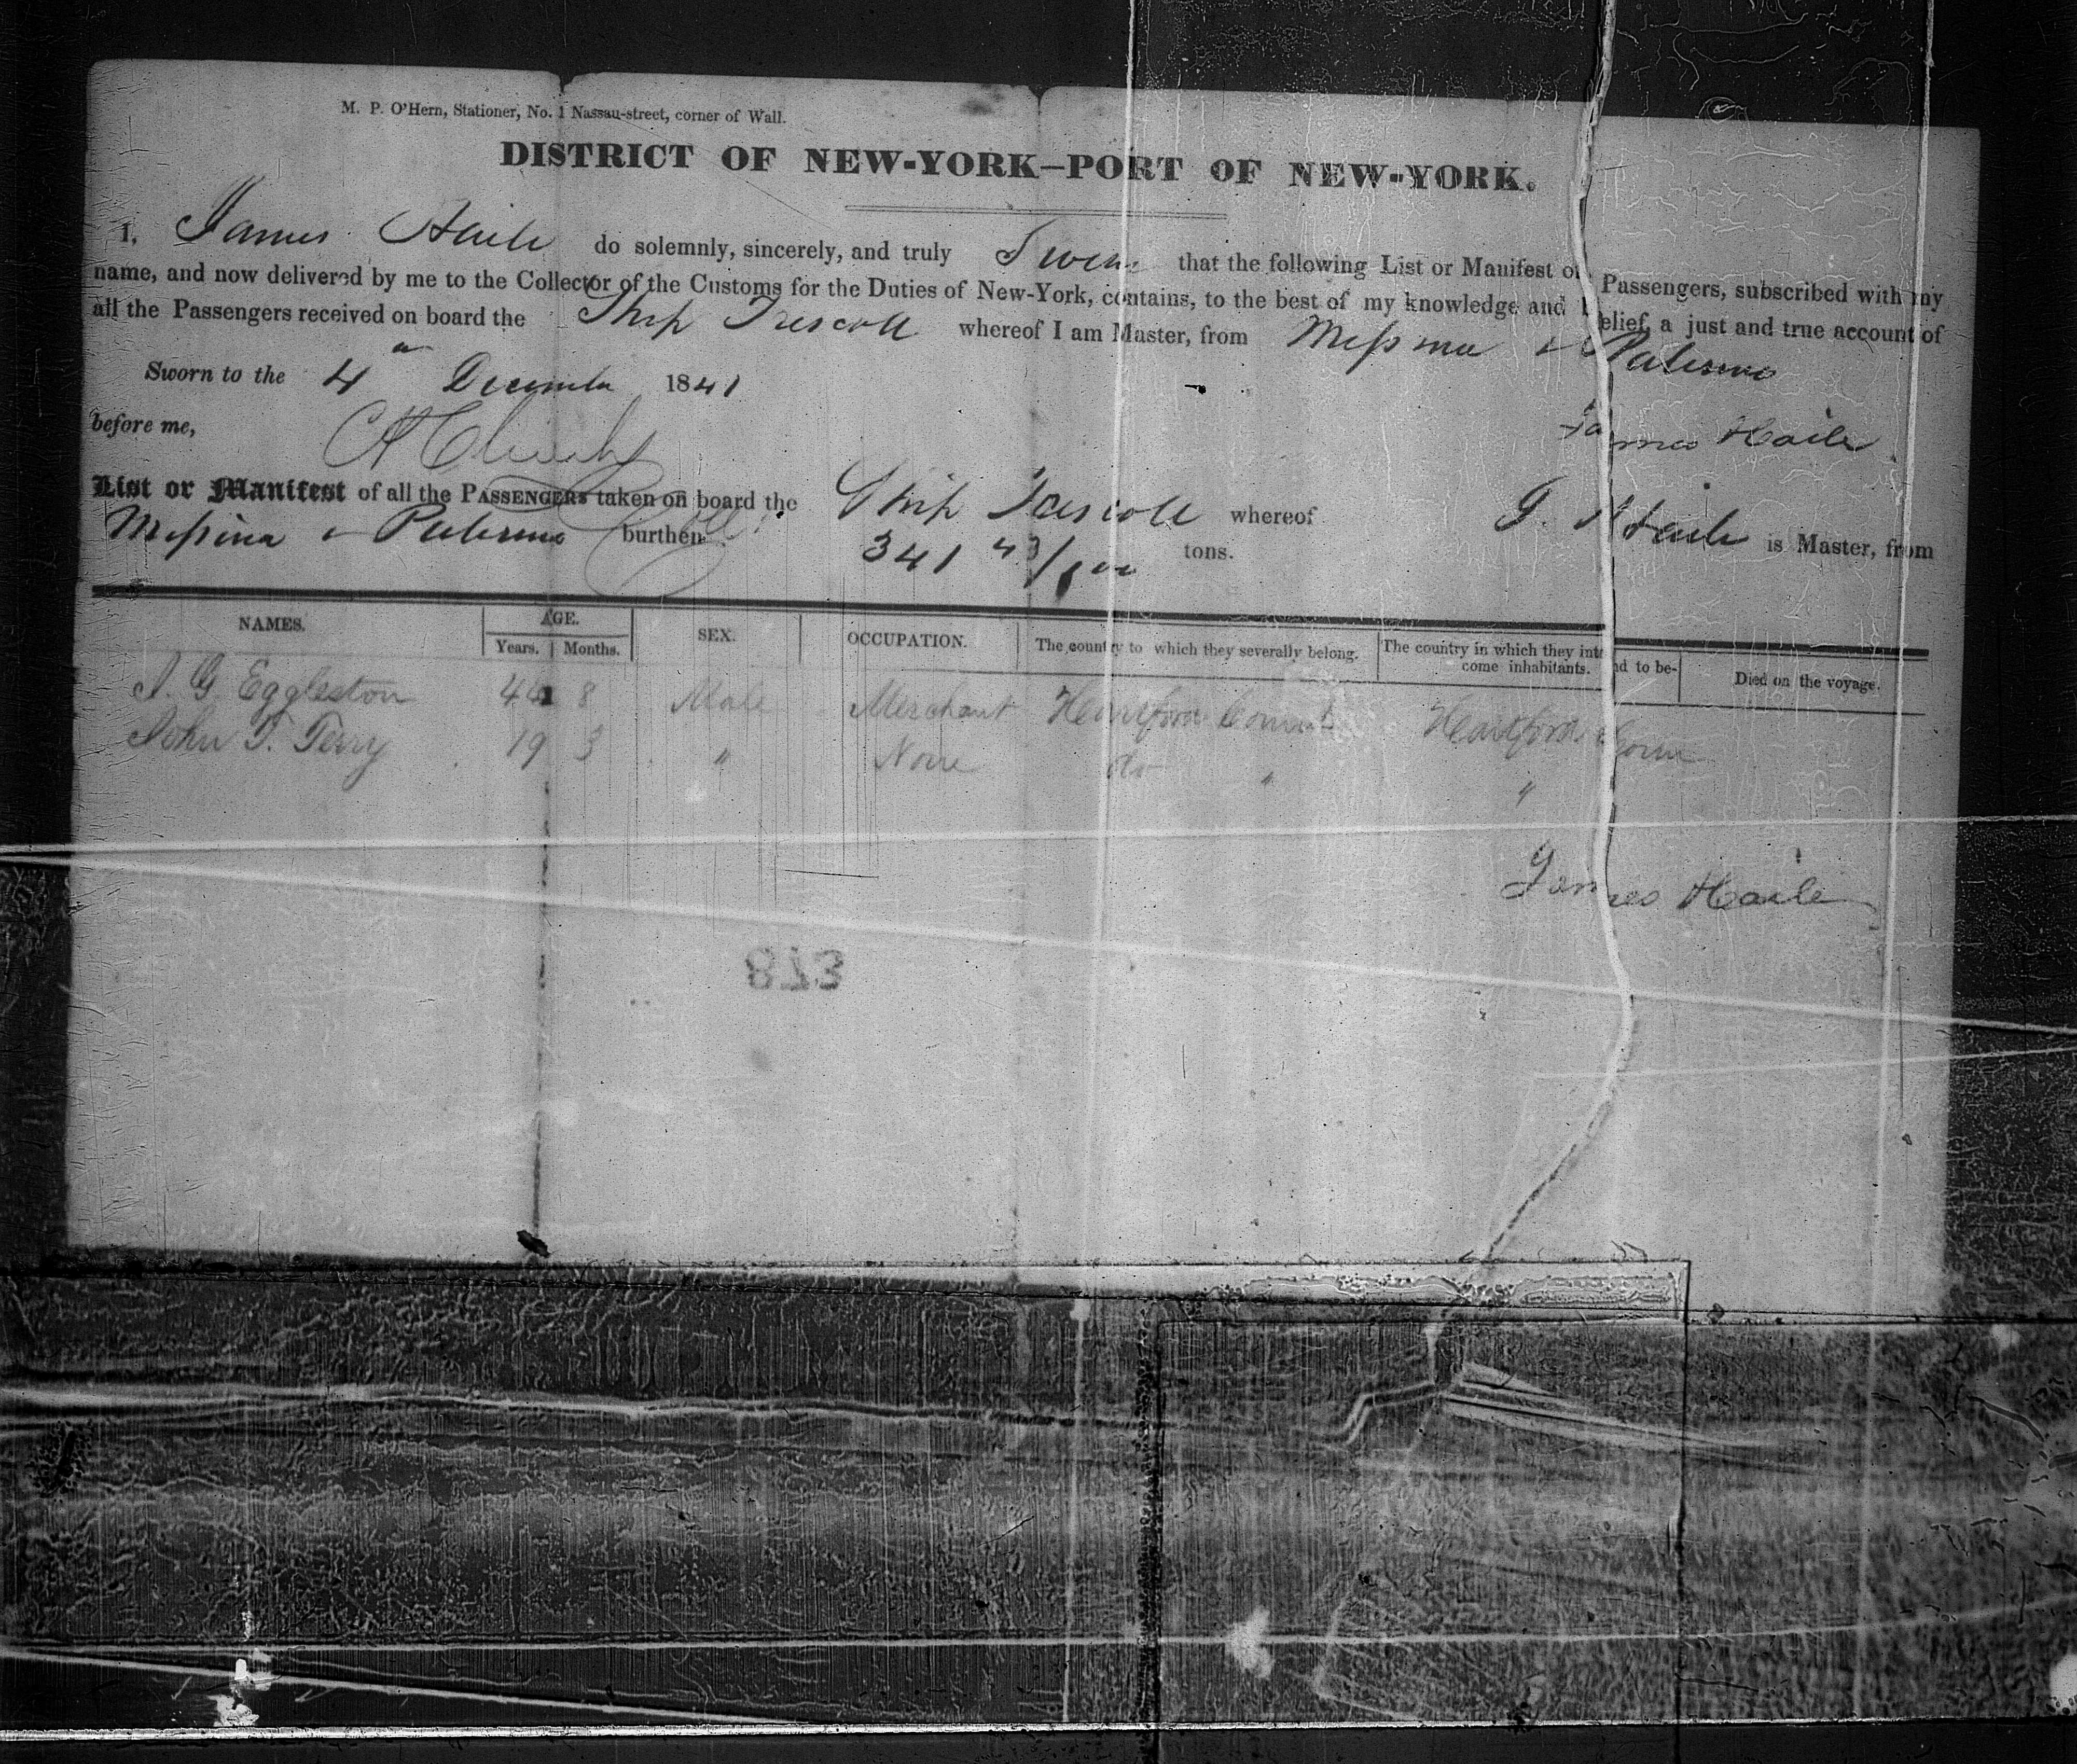 M. P. O'Hern, Stationer, No. 1 Nassau-street, corner of Wall.
DISTRICT OF NEW-YORK—PORT OF NEW-YORK.
I, James Haile do solemnly, sincerely, and truly Swear that the following List or Manifest of Passengers, subscribed with my
name, and now delivered by me to the Collector of the Customs for the Duties of New-York, contains, to the best of my knowledge and belief, a just and true account of
all the Passengers received on board the Ship Trescott whereof I am Master, from Messina & Palermo
Sworn to the 4th December 1841
before me,
James Haile
List or Manifest of all the PASSENGERS taken on board the Ship Trescott whereof J. Haile is Master, from
Messina & Palermo burthen 341 43/100 tons.
NAMES. AGE. SEX. OCCUPATION. The country to which they severally belong. The country in which they intend to be- Died on the voyage.
Years. Months. come inhabitants.
J. G. Eggleston 8 Male Merchant Hartford Hartford Conn
John T. Terry 19 3 " None do " "
James Haile
873